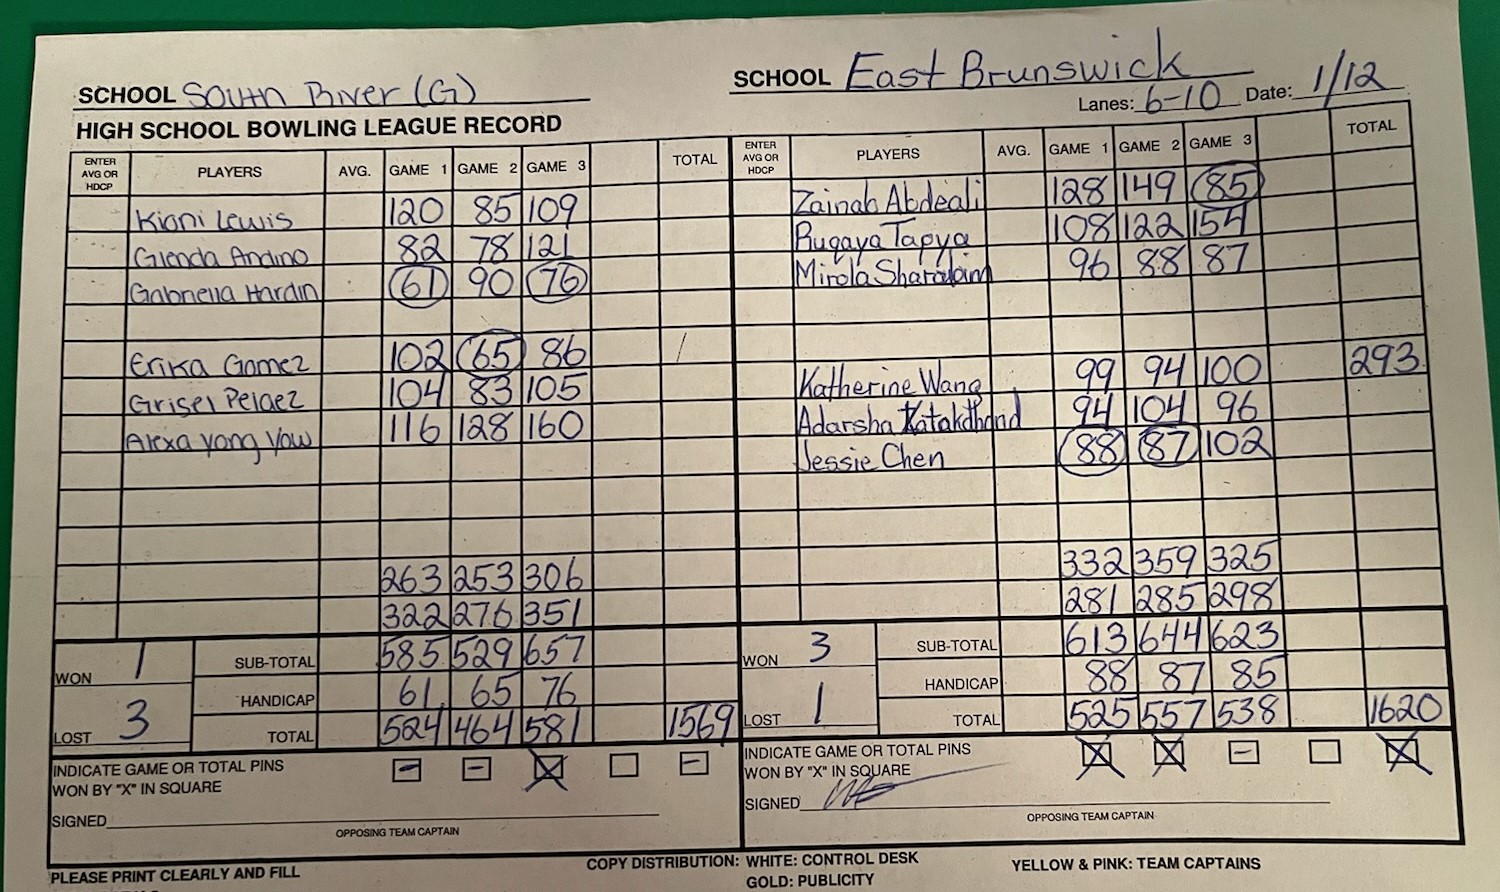 SCHOOL South River (G)
SCHOOL East Brunswick
Lanes: 6-10 Date: 1/12
HIGH SCHOOL BOWLING LEAGUE RECORD
ENTER AVG OR HDCP PLAYERS AVG. GAME 1 GAME 2 GAME 3 TOTAL
Kiani Lewis 120 85 109
Glenda Andino 82 78 121
Gabriella Hardin 61 90 76
Erika Gomez 102 65 86
Grisel Pelaez 104 83 105
Alexa Yong Yow 116 128 160
263 253 306
322 276 351
WON 1 SUB-TOTAL 585 529 657
HANDICAP 61 65 76
LOST 3 TOTAL 524 464 581 1569
INDICATE GAME OR TOTAL PINS
WON BY "X" IN SQUARE - - X -
SIGNED
OPPOSING TEAM CAPTAIN
ENTER AVG OR HDCP PLAYERS AVG. GAME 1 GAME 2 GAME 3 TOTAL
Zainab Abdeali 128 149 85
Ruqaya Tapya 108 122 154
Mirola 96 88 87
Katherine Wang 99 94 100 293
Adarsha Katakdhond 94 104 96
Jessie Chen 88 87 102
332 359 325
281 285 298
WON 3 SUB-TOTAL 613 644 623
HANDICAP 88 87 85
LOST 1 TOTAL 525 557 538 1620
INDICATE GAME OR TOTAL PINS
WON BY "X" IN SQUARE X X - X
SIGNED
OPPOSING TEAM CAPTAIN
PLEASE PRINT CLEARLY AND FILL
COPY DISTRIBUTION: WHITE: CONTROL DESK
GOLD: PUBLICITY
YELLOW & PINK: TEAM CAPTAINS